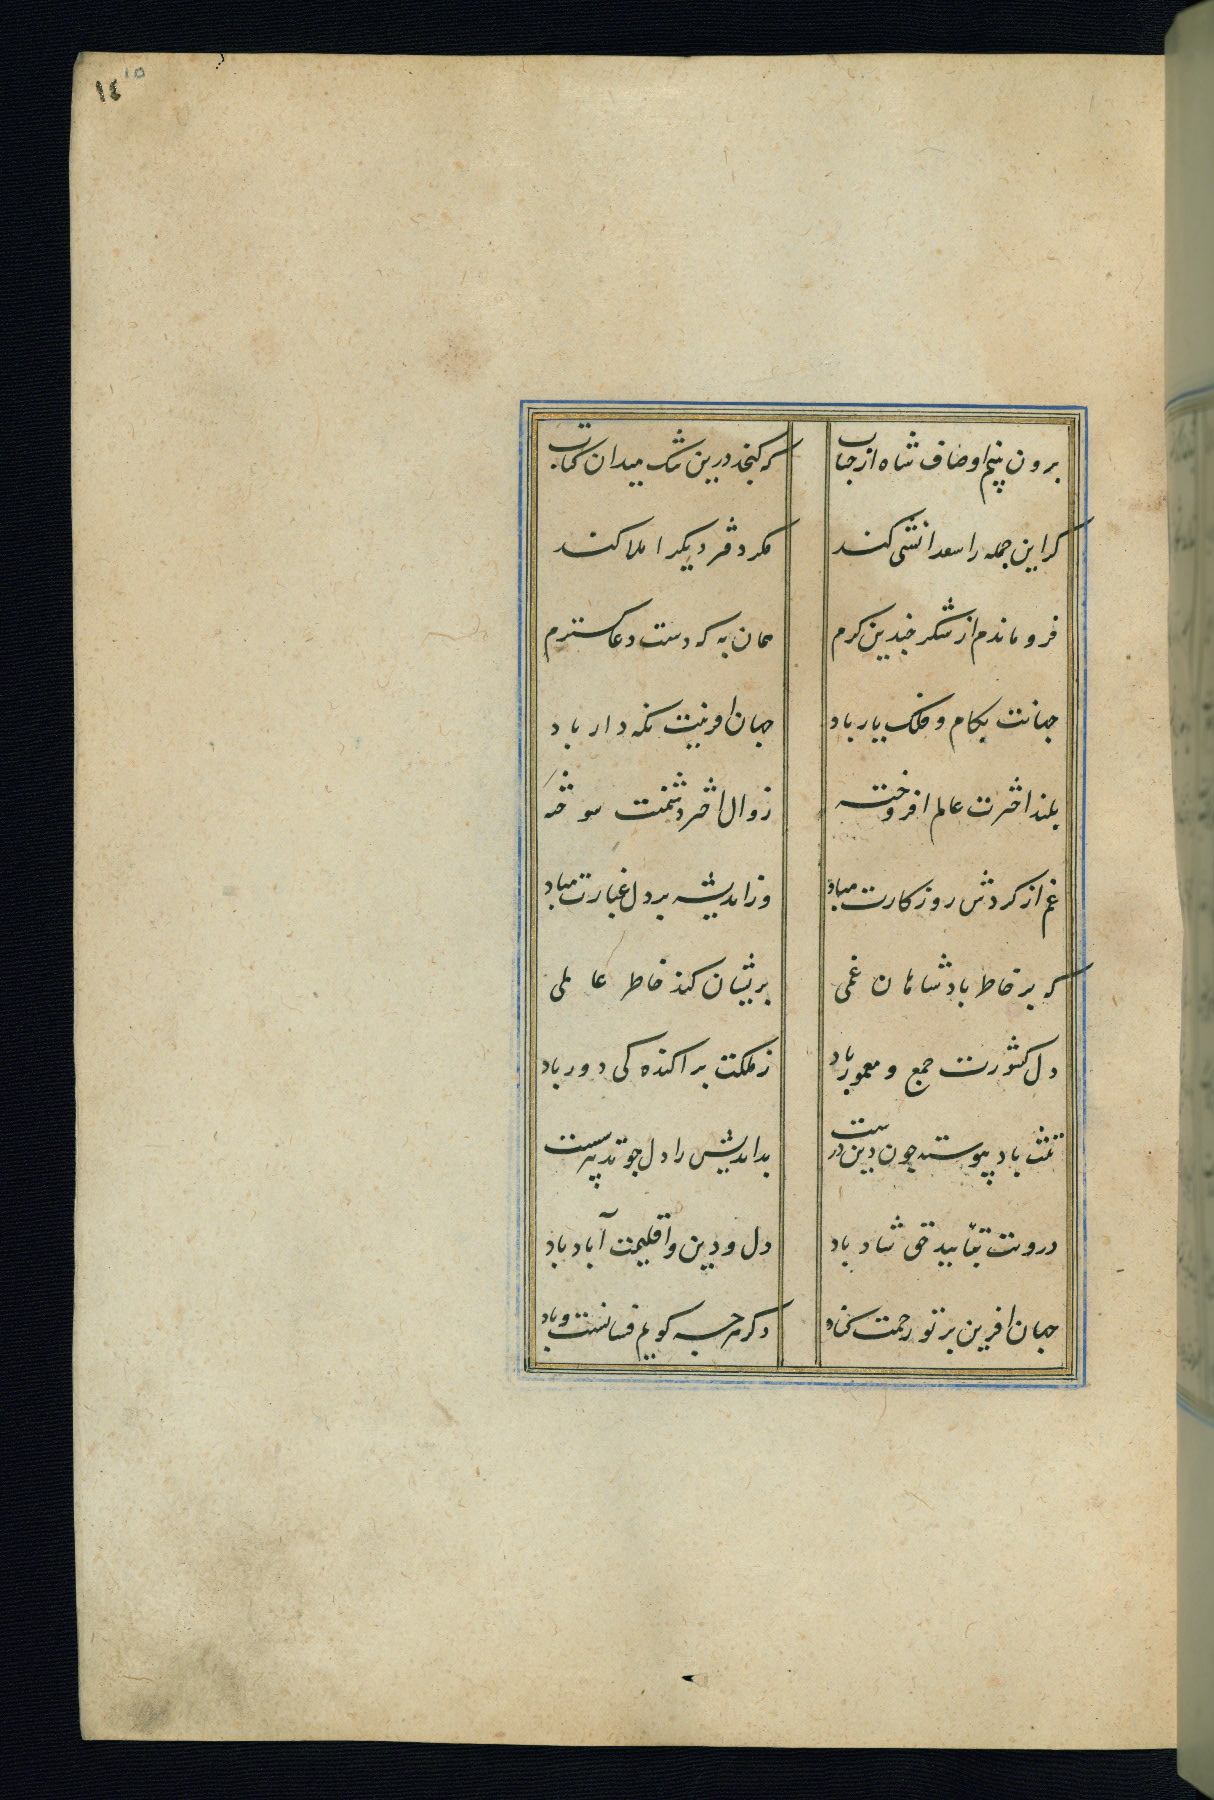 ١٤ ١٥
برون بینم اوصاف شاه از حساب که کنجد درین تنک میدان کتاب
کر این جمله را سعدی انشی کند مکر دفتر دیکر املا کند
فرو ماندم از شکر چندین کرم همان به که دست دعا کسترم
جهانت بکام و فلک یار باد جهان افرینت نکه دار باد
بلند اخترت عالم افروخته زوال اختر دشمنت سوخته
غم از کردش روزکارت مباد وز اندیشه بر دل غبارت مباد
که بر خاطر بادشاهان غمی بریشان کند خاطر عالمی
دل کشورت جمع و معمور باد ز ملکت براکندکی دور باد
تنت باد پیوسته جون دین درست بداندیش را دل جو تدبیر سست
درونت بتایید حق شاد باد دل و دین و اقلیمت آباد باد
جهان افرین بر تو رحمت کناد دکر هرجه کویم فسانست و باد